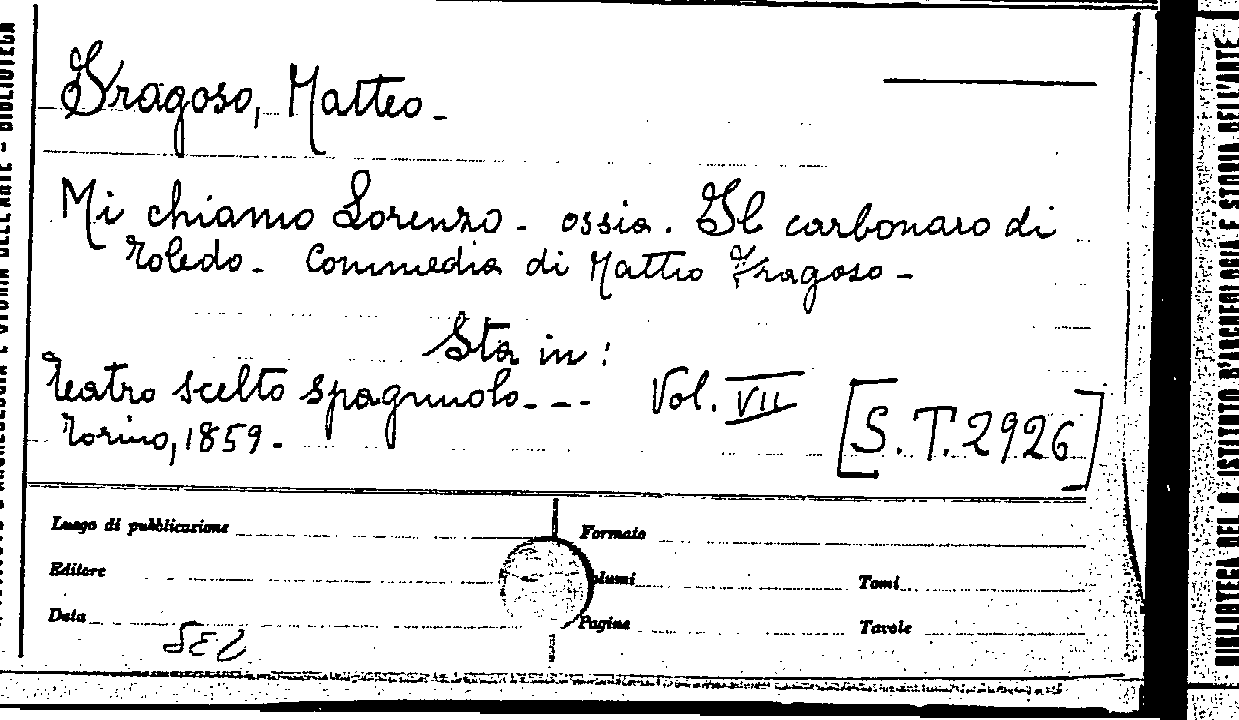 Fragoso, Matteo -
Mi chiamo Lorenzo - ossia. Il carbonaro di
Toledo - Commedia di Matteo Fragoso -
Sta in:
Teatro scelto spagnuolo - - - Vol. VII
[S. T. 2926]
Torino, 1859 -
Luogo di pubblicazione
Formato
Editore
Volumi
Tomi
Data
Pagine
Tavole
BIBLIOTECA DEL R. ISTITUTO D'ARCHEOLOGIA E STORIA DELL'ARTE